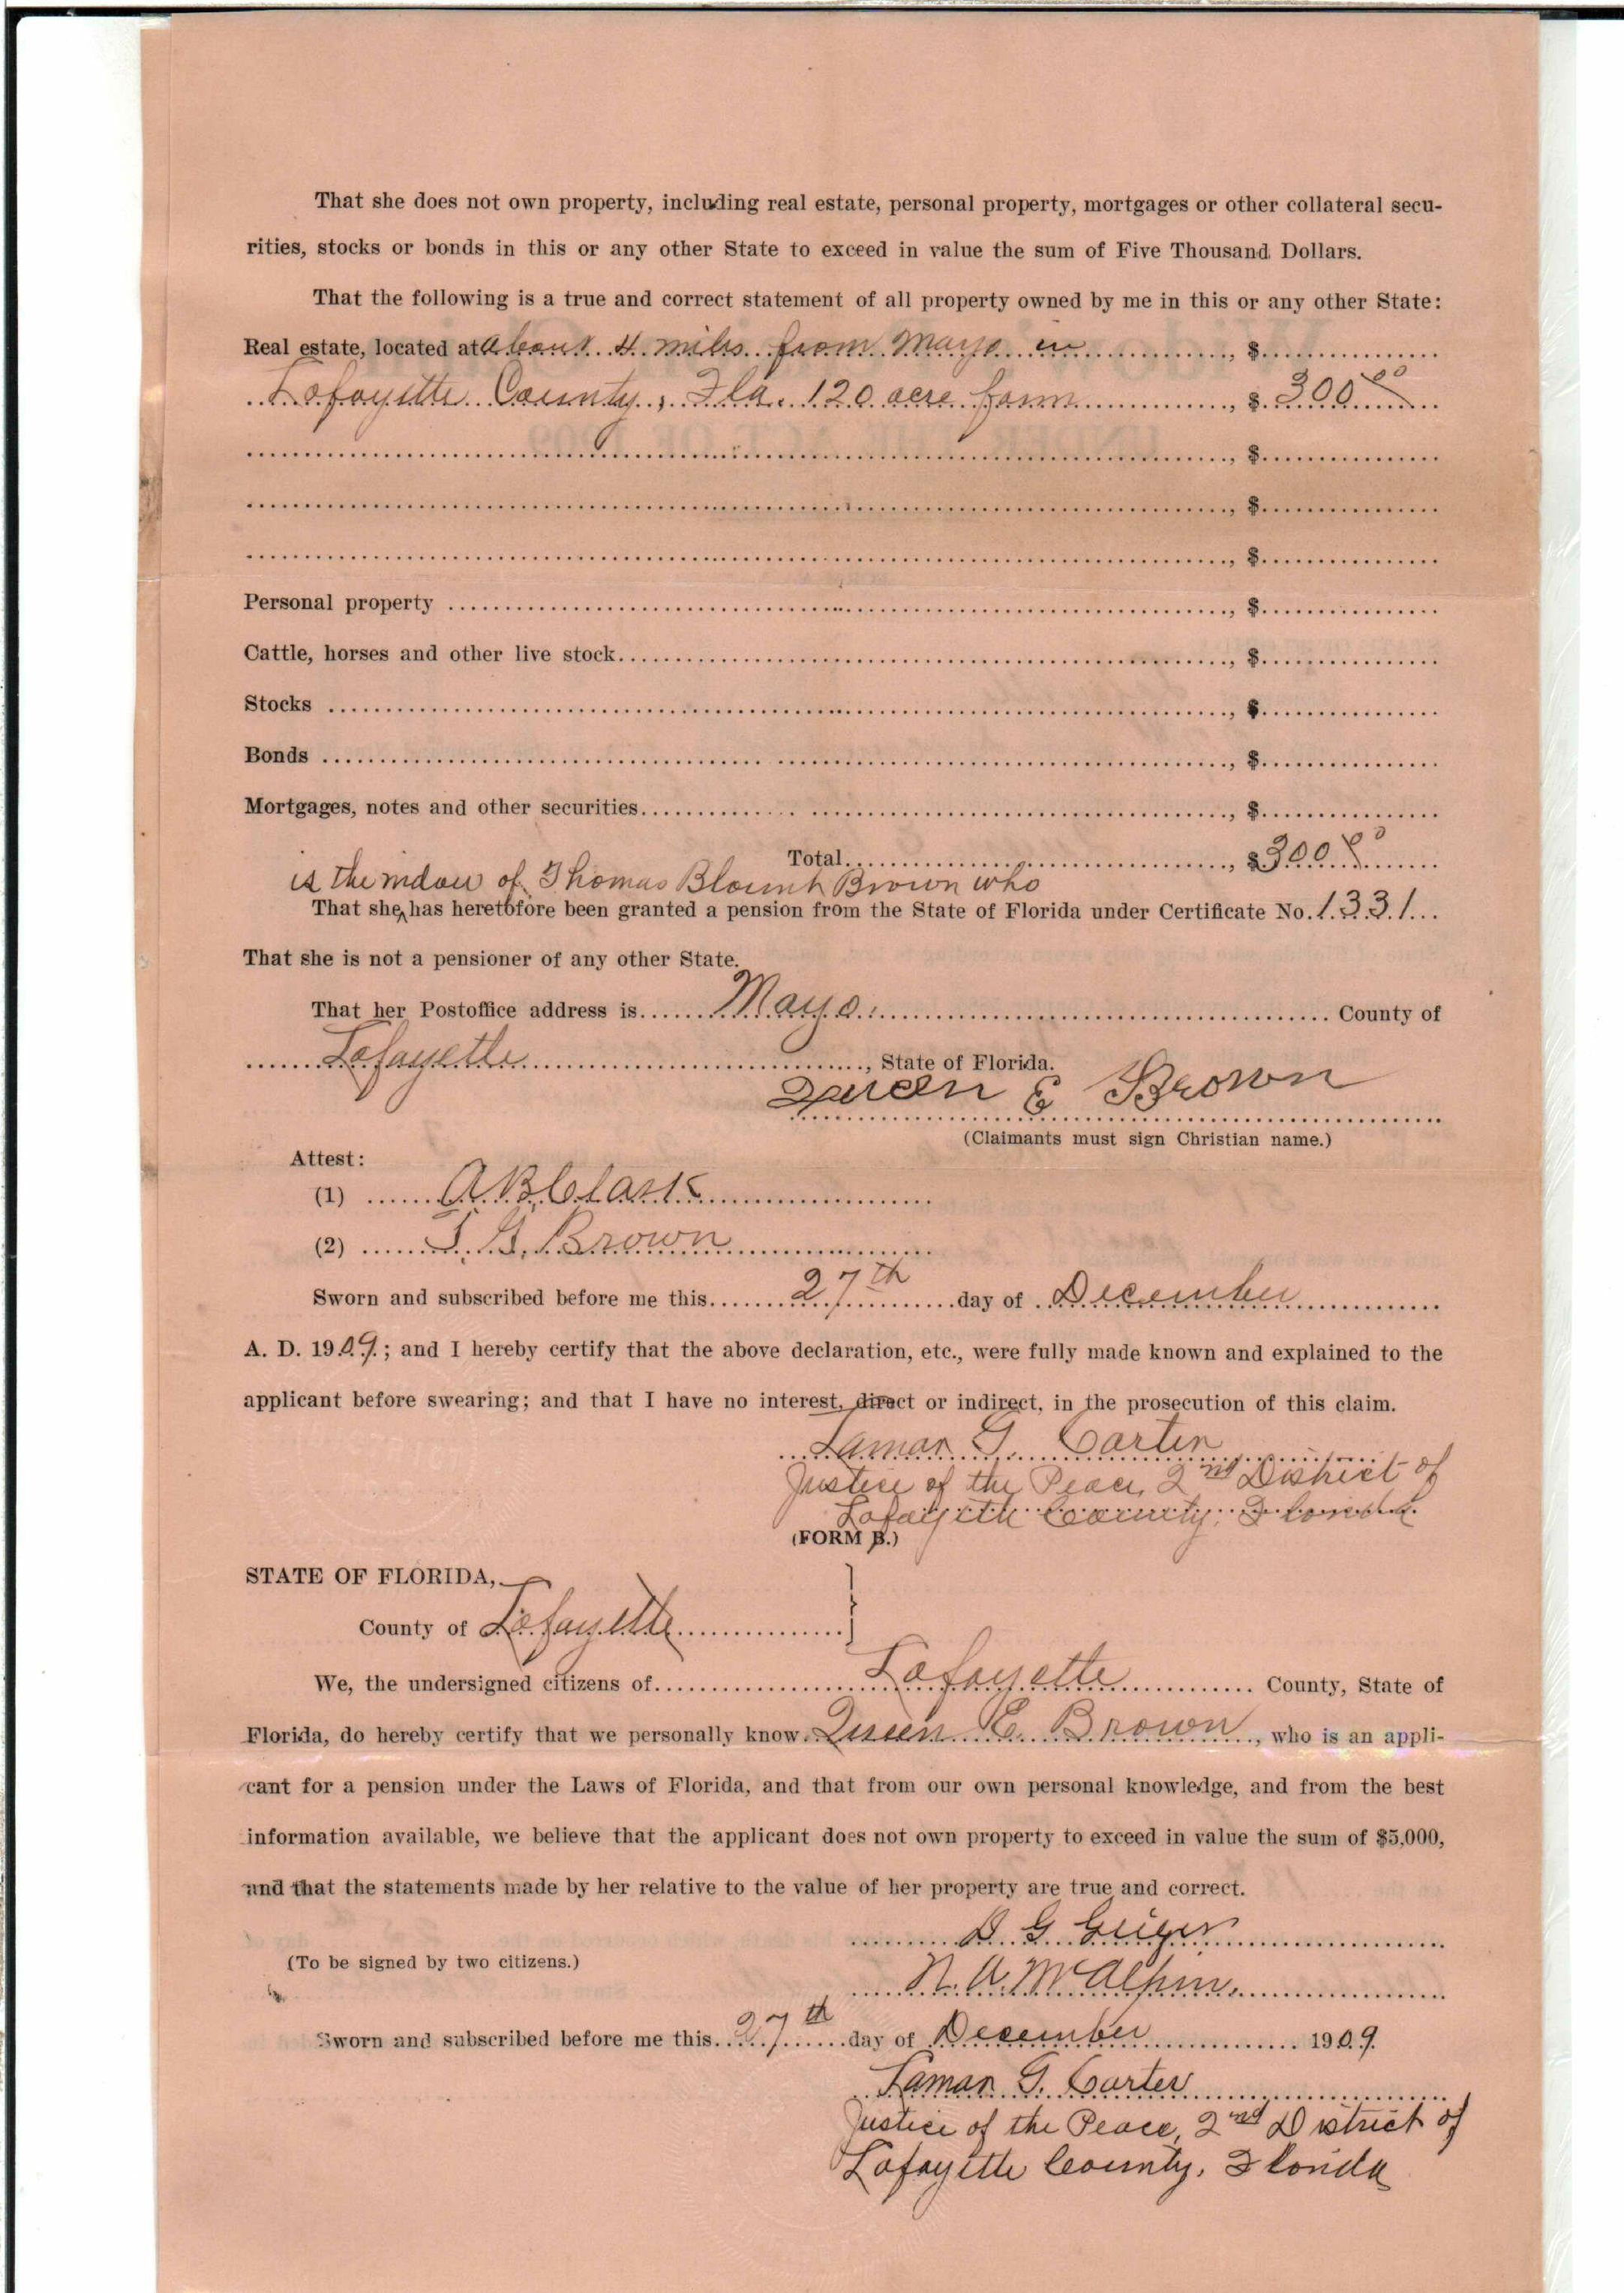 That she does not own property, including real estate, personal property, mortgages or other collateral secu-
rities, stocks or bonds in this or any other State to exceed in value the sum of Five Thousand Dollars.
That the following is a true and correct statement of all property owned by me in this or any other State:
Real estate, located at about 4 miles from Mayo in, $
Lafayette County, Fla. 120 acre farm, $ 300 00
, $
, $
, $
Personal property, $
Cattle, horses and other live stock, $
Stocks, $
Bonds, $
Mortgages, notes and other securities, $
Total, $300 00
is the widow of Thomas Blount Brown who
That she ^ has heretofore been granted a pension from the State of Florida under Certificate No. 1331
That she is not a pensioner of any other State.
That her Postoffice address is Mayo County of
Lafayette, State of Florida.
Queen E Brown
(Claimants must sign Christian name.)
Attest:
(1) A B Clark
(2) T. G. Brown
Sworn and subscribed before me this 27th day of December
A. D. 1909; and I hereby certify that the above declaration, etc., were fully made known and explained to the
applicant before swearing; and that I have no interest, direct or indirect, in the prosecution of this claim.
Lamar G. Carter
Justice of the Peace, 2nd District of
Lafayette County, Florida
(FORM B.)
STATE OF FLORIDA,
County of Lafayette
We, the undersigned citizens of Lafayette County, State of
Florida, do hereby certify that we personally know Queen E. Brown, who is an appli-
cant for a pension under the Laws of Florida, and that from our own personal knowledge, and from the best
information available, we believe that the applicant does not own property to exceed in value the sum of $5,000,
and that the statements made by her relative to the value of her property are true and correct.
D G Geiger
(To be signed by two citizens.)
N. A. McAlpin
Sworn and subscribed before me this 27th day of December 1909.
Lamar G. Carter
Justice of the Peace, 2nd District of
Lafayette County, Florida